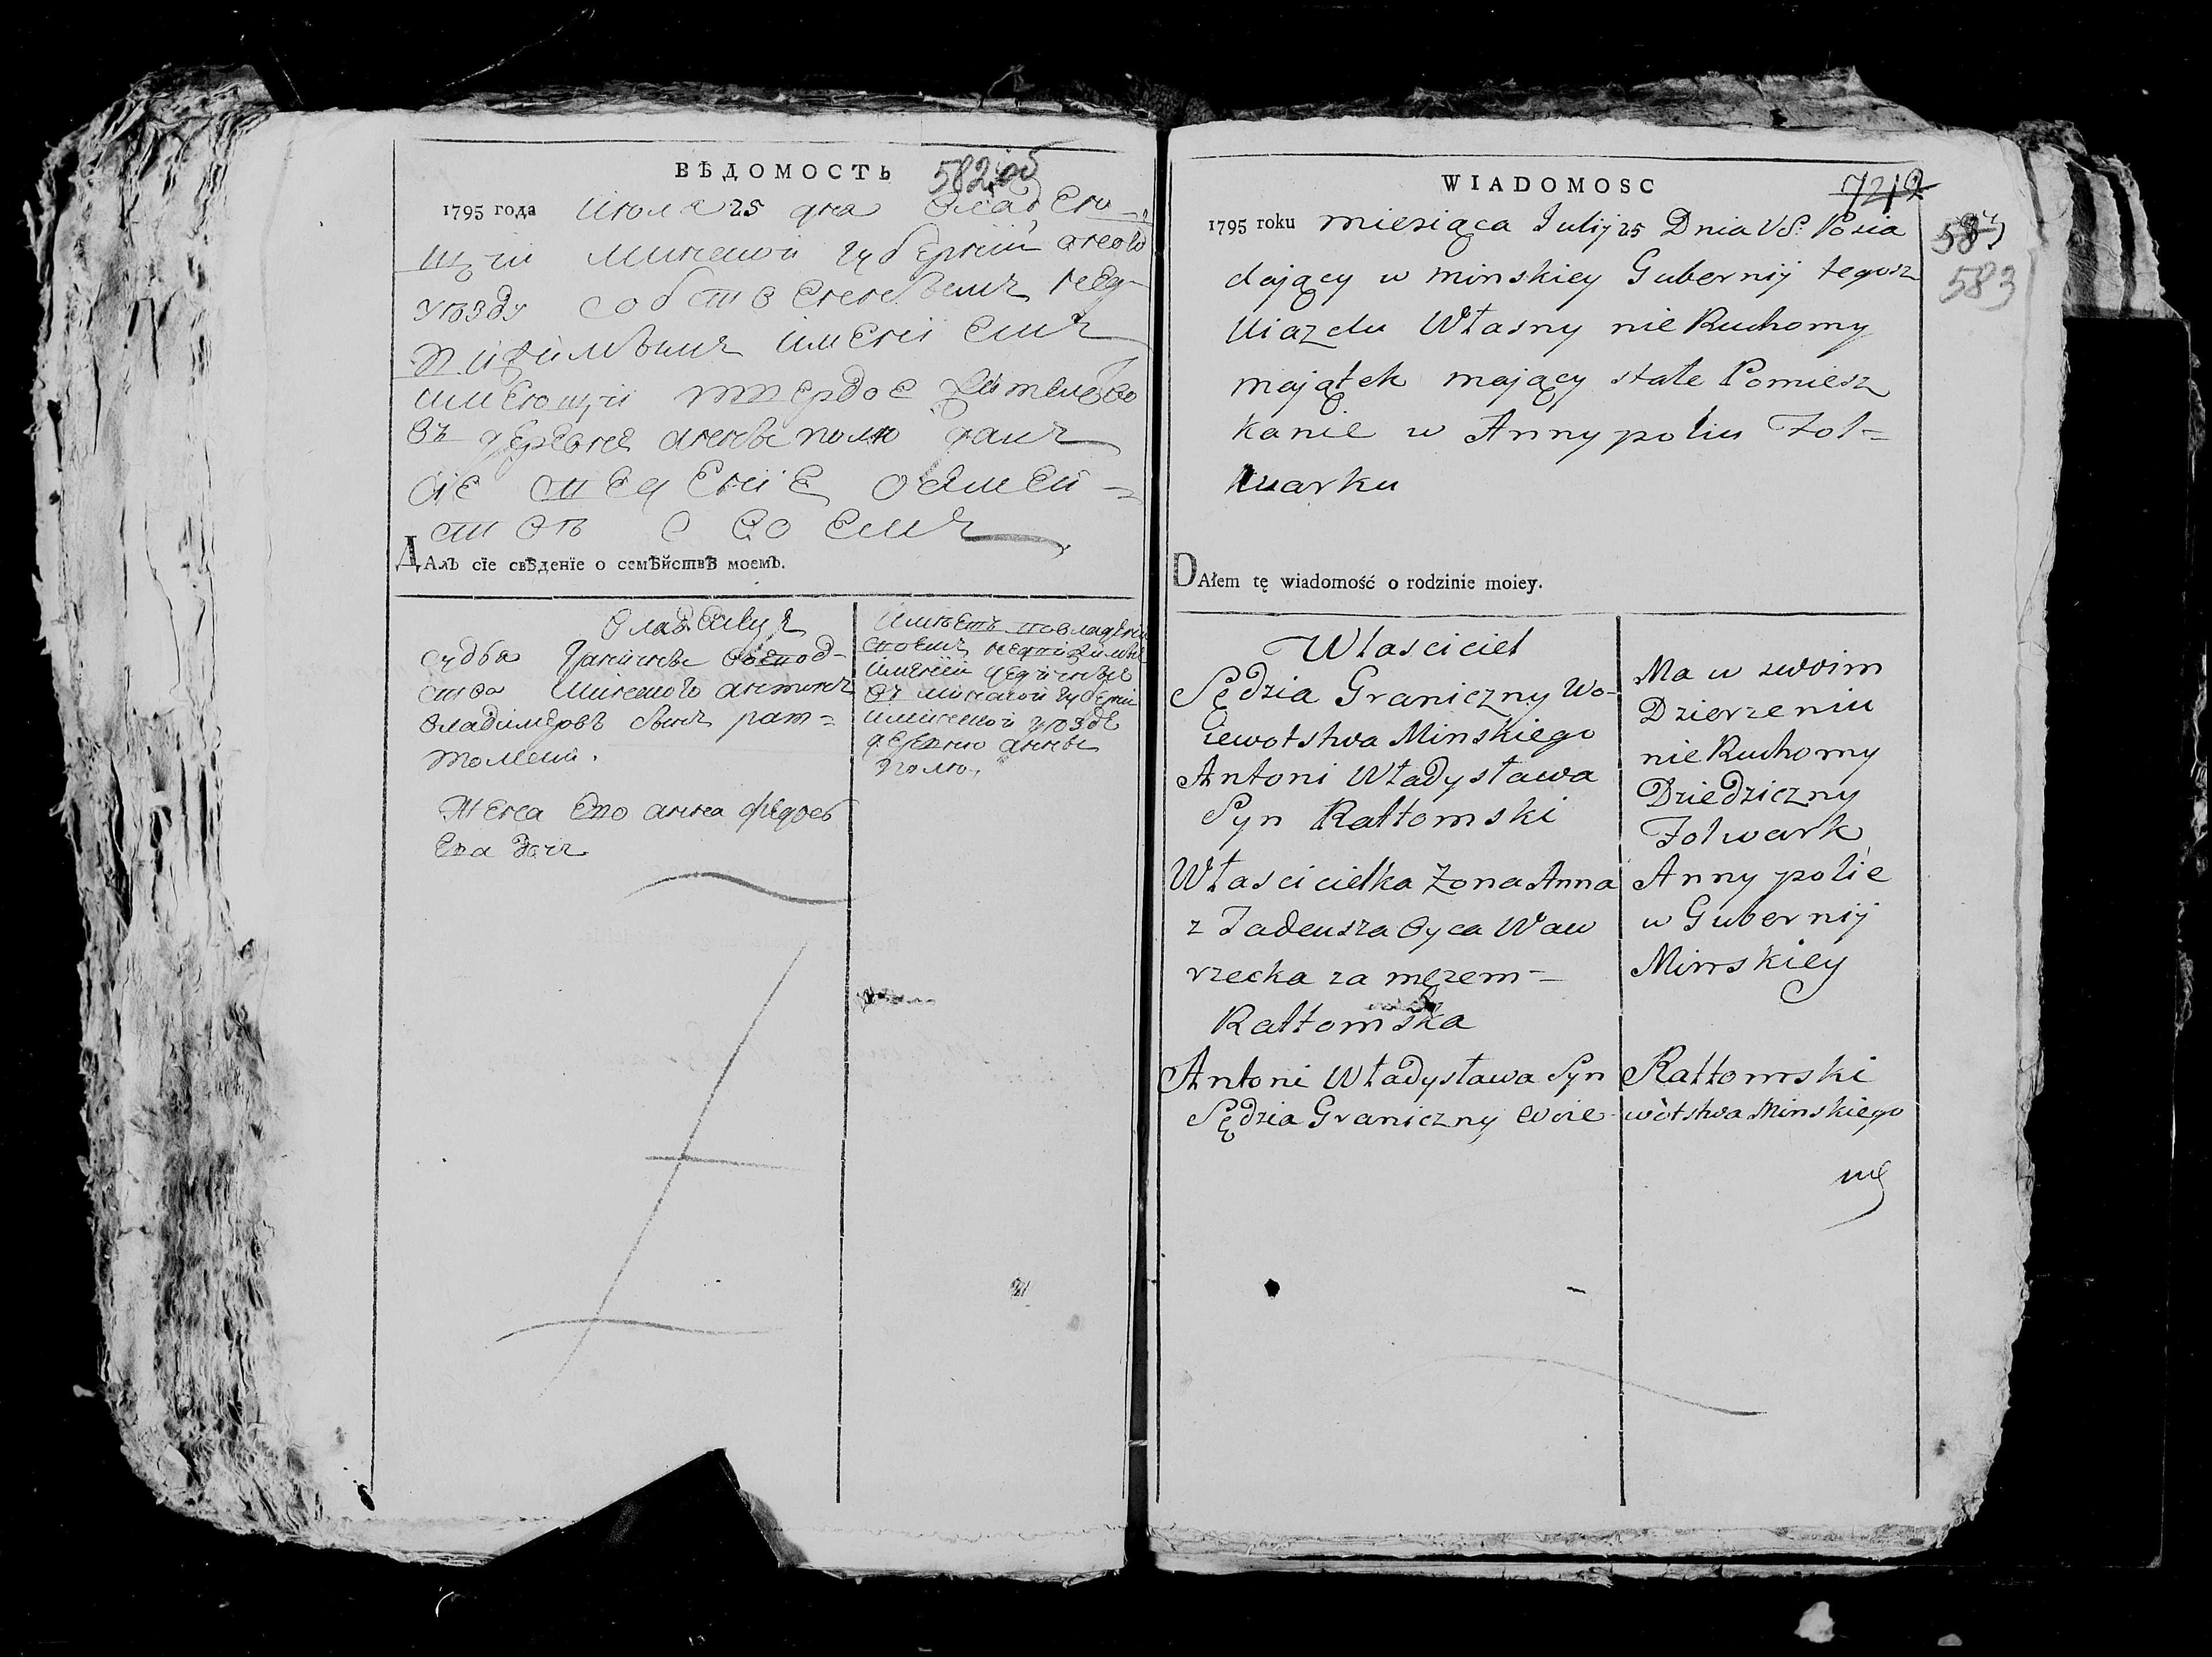 ВѢДОМОСТЬ
582 об
1795 года Июля 25 дня владею-
щій минской губерніи оного
уѣзду собственнымъ нед-
вижимымъ имениемъ
имеющій твердое жителство
въ деревне аннѣполю далъ
сіе сведение о фамели-
своемъ
ДАлъ сїе свѣденїе о семѣйствѣ моемъ.
владелецъ
судья граничны воевод-
ства минского антонъ
владимеровъ сынъ рат-
томски.
Жена ево анна федоро
ева дочь
имѣетъ во владени
своемъ недвижимы
имении
въ минской губерни
минской уѣзде
деревню анны
полю.
WIADOMOSC
7212
1795 roku miesiąca Julij 25 Dnia VS: Posia
583
dający w minskiey Gubernij tegosz
583
Uiazdu Własny nie Ruchomy
majątek mający stałe Pomiesz
kanie w Annypoliu Fol=
warku
DAłem tę wiadomość o rodzinie moiey.
Własciciel
Sędzia Graniczny Wo-
iewotstwa Minskiego
Antoni Władysława
Syn Rattomski
Własci cielka Żona Anna
z Tadeusza Oyca Waw
rzecka za mężem =
Rattomska
Ma w swoim
Dzierzeniu
nie Ruchomy
Dziedziczny
Folwark
Anny polie
w Gubernij
Minskiey
Antoni Władysława Syn Rattomski
Sędzia Graniczny Woie wotstwa Minskiego